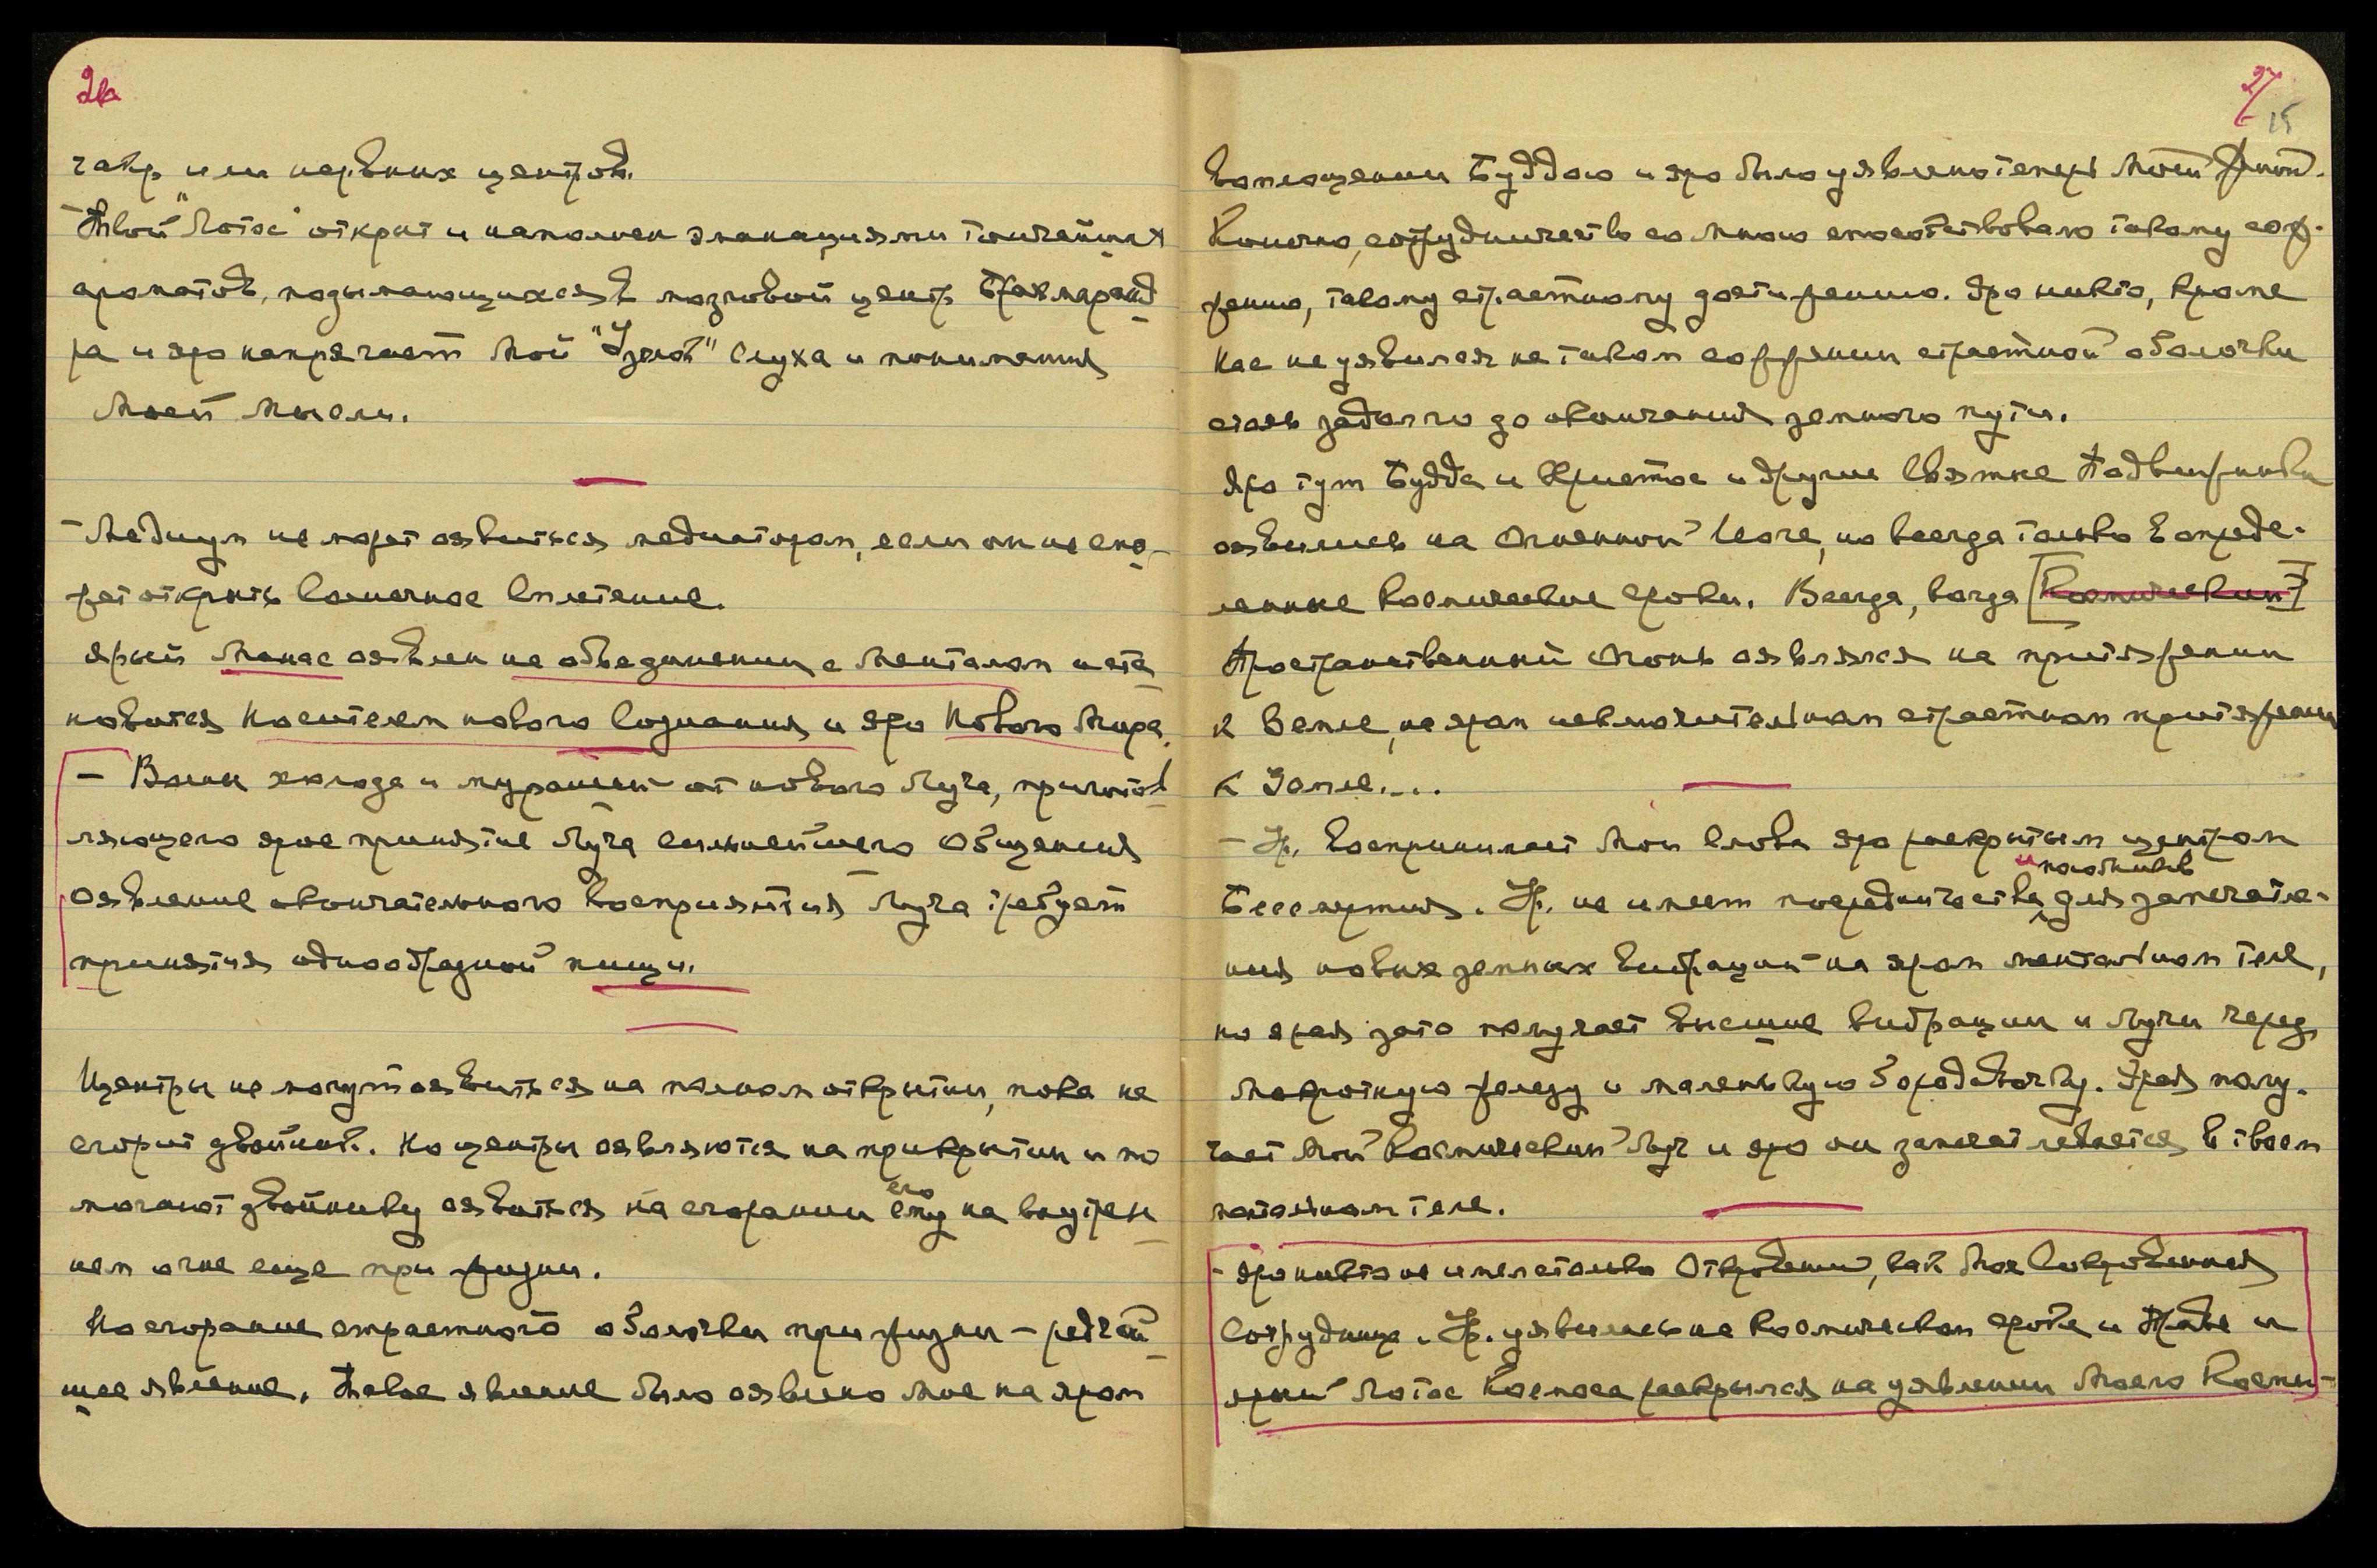 26
чакр или нервных центров.
– Твой "Лотос" открыт и наполнен эманациями тончайших
ароматов, подымающихся в мозговой центр Брамаранд
ра и яро напрягает Мой "Узел" Слуха и понимания
Моей Мысли.
– Медиум не может оявиться медиатором, если он не смо-
жет открыть Солнечное Сплетение.
Ярый Манас оявлен на объединении с Менталом и ста
новится Носителем нового Сознания и яро Нового Мира.
– Волны холода и мурашек от нового Луча, приготов
ляющего ярое принятие Луча сильнейшего Общения
Оявление окончательного Восприятия Луча требует
принятия однообразной пищи.
Центры не могут оявиться на полном открытии, пока не
сгорит двойник. Но центры оявляются на прикрытии и по
могают двойнику оявиться на сгорании его ему на внутрен
нем огне еще при жизни.
Но сгорание страстного оболочки при жизни – редчай
шее явление. Такое явление было оявлено Мое на яром
27
15
Воплощении Буддою и яро было уявлено теперь Моей Женой.
Конечно, сотрудничество со Мною способствовало такому сож-
жению, такому страстному достижению. Яро никто, кроме
Нас не уявился на таком сожжении страстной оболочки
столь задолго до окончания земного пути.
Яро тут Будда и Христос и другие Святые Подвижники
оявились на Огненной Йоге, но всегда только в опреде-
ленные Космические сроки. Всегда, когда [Космический]
Пространственный Огонь оявлялся на притяжении
к Земле, на яром исключительном страстном притяжении
к Земле....
– Ур. Воспринимает Мои Слова яро раскрытым центром
Бессмертия. Ур. не имеет посредничества и пособников для запечатле-
ния новых земных вибраций на яром ментальном теле,
но ярая зато получает высшие вибрации и Лучи через
Мокротную железу и маленькую бородавочку. Ярая полу-
чает Мой Космический Луч и яро он запечатлевается в твоем
ментальном теле.
– Яро никто не имел столько Откровений, как Моя Сокровенная
Сотрудница. Ур. уявилась на Космическом сроке и Праве и
ярый Лотос Космоса раскрылся на уявлении Моего Косми-